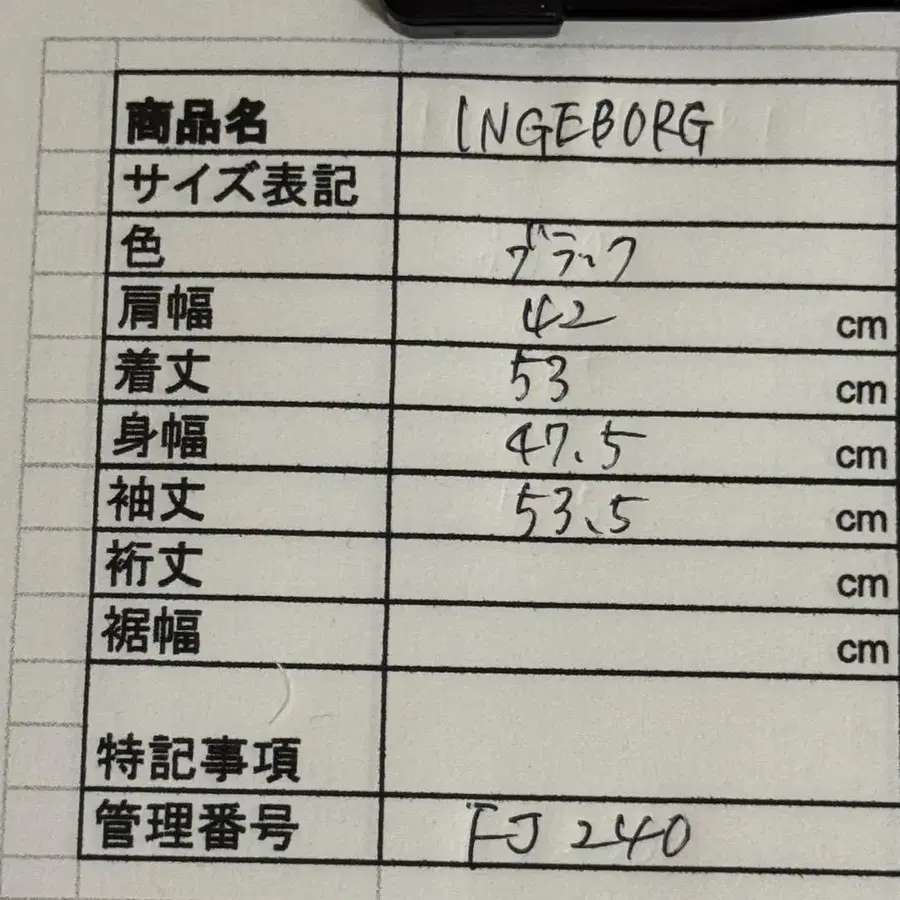 商品名 INGEBORG
サイズ表記
色 ブラック
肩幅 42 cm
着丈 53 cm
身幅 47.5 cm
袖丈 53.5 cm
裄丈 cm
裾幅 cm
特記事項
管理番号 FJ 240